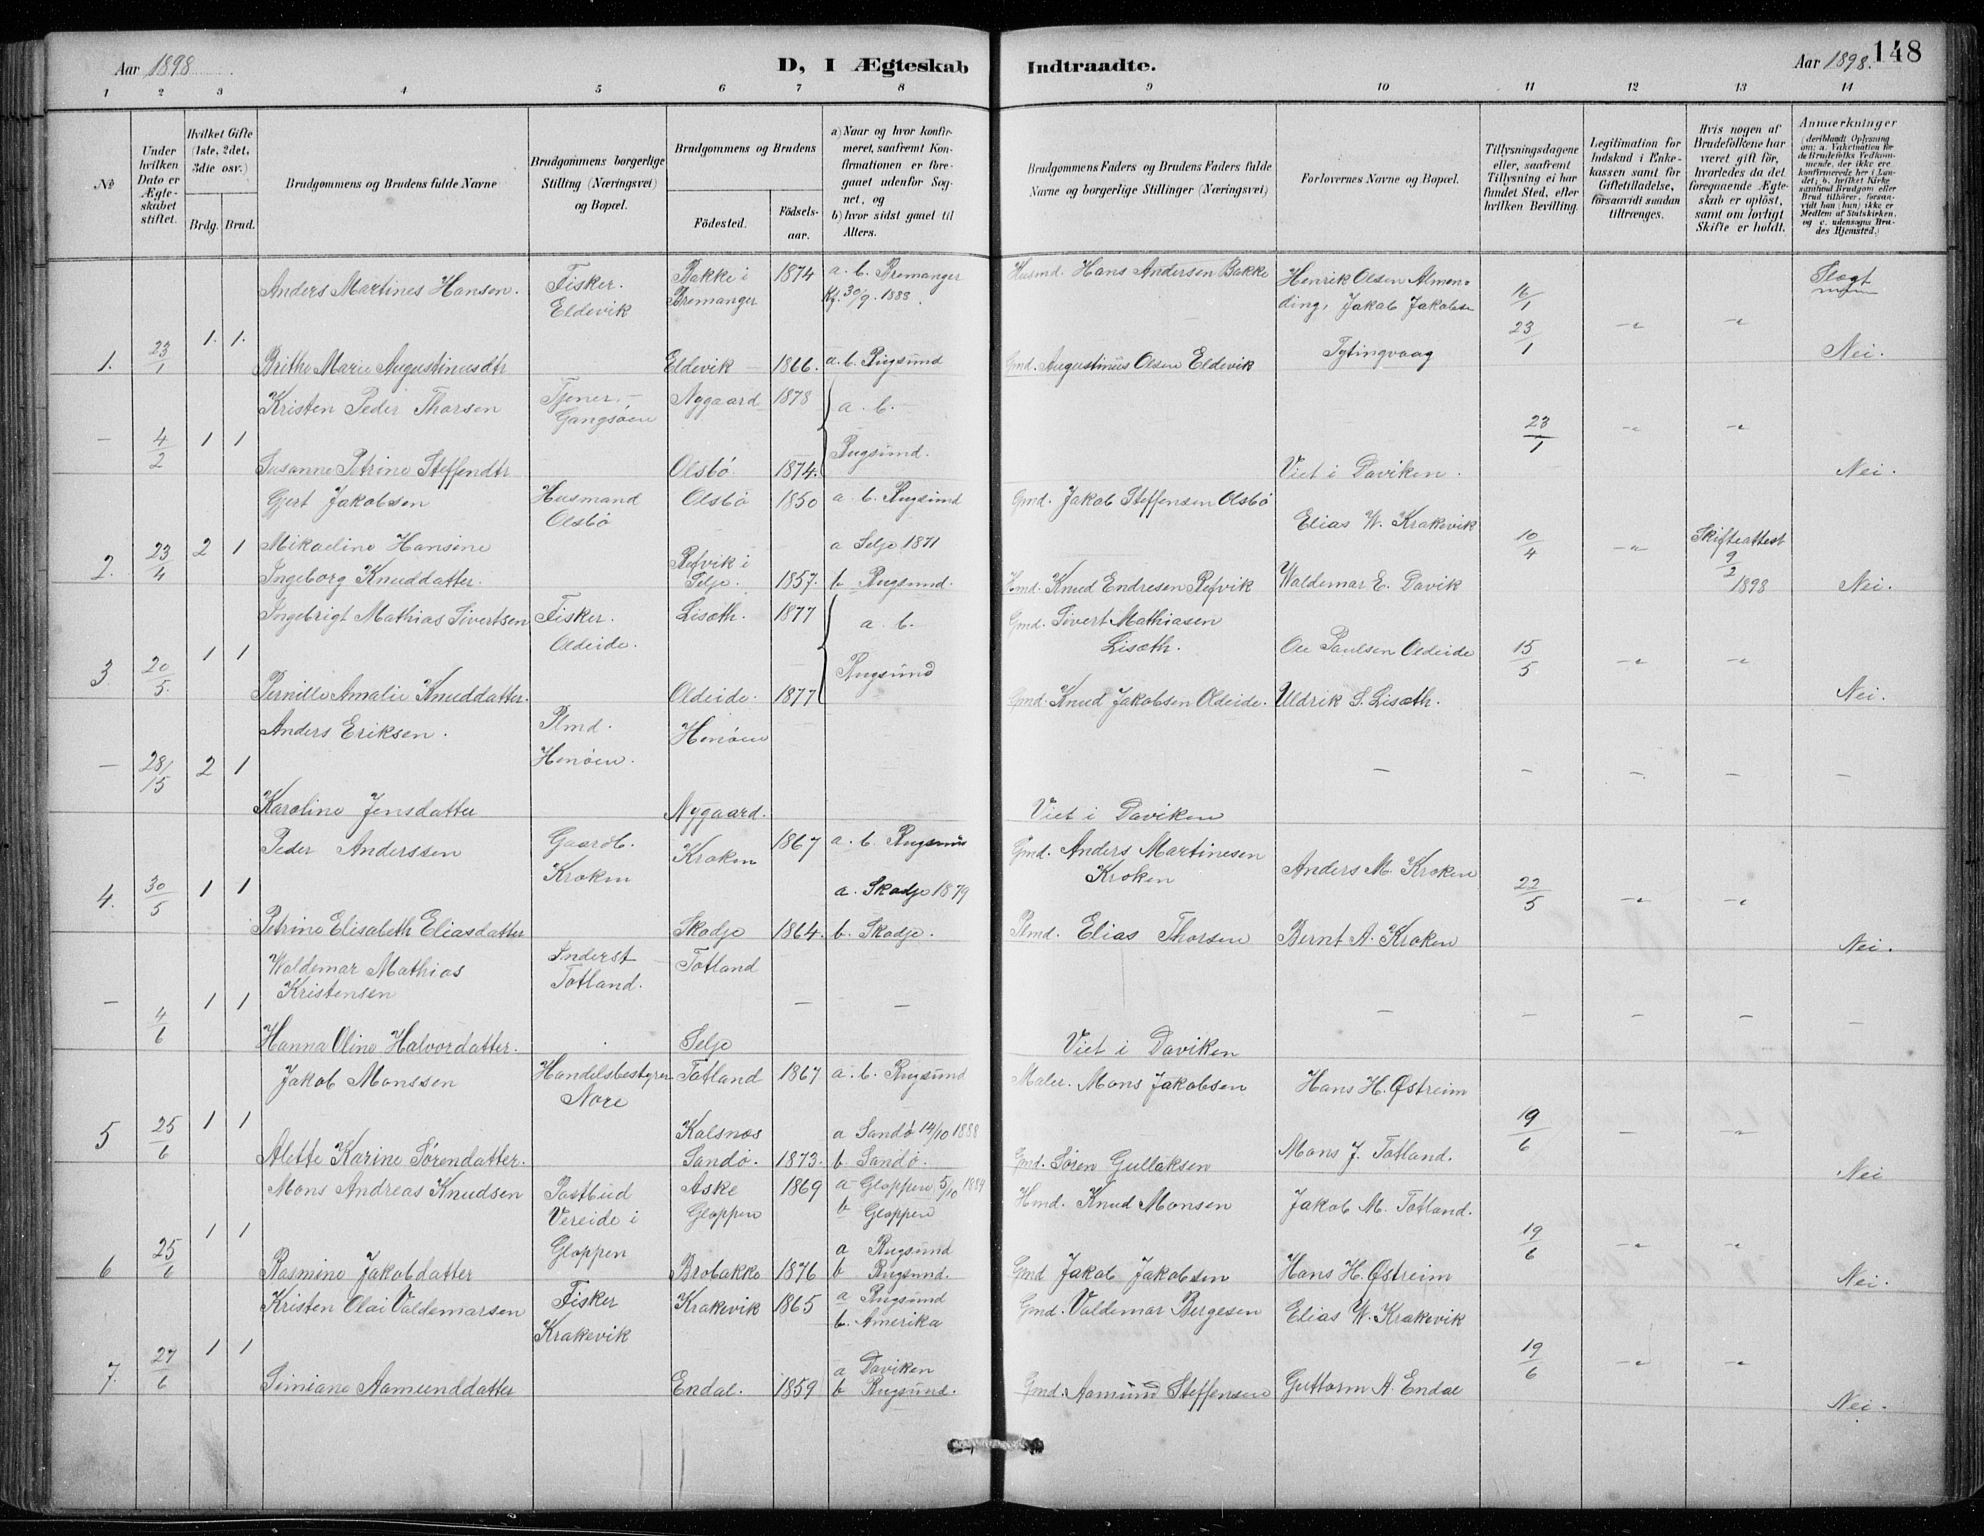 Aar 1898
D, I Ægteskab Indtraadte.
Aar 1898. 148
1 2 3 4 5 6 7 8 9 10 11 12 13 14
№
Under hvilken Dato er Ægteskabet stiftet.
Hvilket Gifte (1ste, 2det, 3die osv.)
Brdg. Brud.
Brudgommens og Brudens fulde Navne
Brudgommens borgerlige Stilling (Næringsvei) og Bopæl.
Brudgommens og Brudens
Födested. Födselsaar.
a) Naar og hvor konfirmeret, saafremt Konfirmationen er foregaaet udenfor Sognet, og
b) hvor sidst gaaet til Alters.
Brudgommens Faders og Brudens Faders fulde Navne og borgerlige Stillinger (Næringsvei)
Forlovernes Navne og Bopæl.
Tillysningsdagene eller, saafremt Tillysning ei har fundet Sted, efter hvilken Bevilling.
Legitimation for Indskud i Enkekassen samt for Giftetilladelse, forsaavidt saadan tiltrænges.
Hvis nogen af Brudefolkene har været gift för, hvorledes da det foregaaende Ægteskab er oplöst, samt om lovligt Skifte er holdt.
Anmærkninger
(deriblandt Oplysning om: a. Vakcination for de Brudefolks Vedkommende, der ikke ere konfirmerede her i Landet; b. hvilket Kirkesamfund Brudgom eller Brud tilhörer, forsaavidt han (hun) ikke er Medlem af Statskirken, og c. udensogns Brudes Hjemsted.)
Anders Martines Hansen. Fisker. Bakke i 1874 a. b. Bremanger Husmd. Hans Andersen Bakke Henrik Olsen Almen- 16/1 Slegt
Eldevik Bremanger Kf. 30/9. 1888. ding, Jakob Jakobsen 23/1
1. 23/1 1. 1. Brithe Marie Augustinusdtr Eldevik 1866. a. b. Rugsund Gmd. Augustinus Olsen Eldevik Tytingvaag Nei.
Kristen Peder Thorsen Tjener. Nygaard 1878 a. b.
Gangsøen
– 4/2 1 1 23/1
Susanne Petrine Steffendtr Olsbö. 1874. Rugsund. Viet i Daviken. Nei.
Gjert Jakobsen Husmand Olsbö 1850 a. b. Rugsund Gmd. Jakob Steffensen Olsbö
Olsbö Elias W. Krakevik
2. 23/4 2 1 Mikaeline Hansine a Selje 1871 10/4 Skifteattest
Ingeborg Knuddatter. Refvik i Selje. 1857. b Rugsund. Hmd. Knud Endresen Refvik Waldemar E. Davik 9/2 1898 Nei.
Ingebrigt Mathias Sivertsen Fisker. Lisæth. 1877 a. b. Gmd. Sivert Mathiasen
Oldeide. Lisæth. Ole Paulsen Oldeide 15/5
3. 20/5. 1 1 Rugsund
Pernille Amalie Knuddatter. Oldeide. 1877 Gmd. Knud Jakobsen Oldeide. Uldrik S. Lisæth. Nei.
Anders Eriksen. Plmd. Henöen
Henöen.
– 28/15 2 1
Karoline Jensdatter Nygaard. Viet i Daviken
Peder Anderssen Gaardb. Kroken 1867 a. b. Rugsund Gmd. Anders Martinesen
Kroken Kroken Anders M. Kroken
4. 30/5 1 1 a. Skodje 1879 22/5
Petrine Elisabeth Eliasdatter Skodje 1864. b. Skodje. Plmd. Elias Thorsen Bernt A. Kroken Nei.
Waldemar Mathias Inderst Totland
Kristensen Totland.
– 4/6 1 1
Hanna Oline Halvordatter. Selje Viet i Daviken
Jakob Monssen Handelsbestyrer Totland 1867 a. b. Rugsund Maler. Mons Jakobsen Hans H. Østreim
Nore
5 25/6 1 1 Kalsnes a Sandö 14/10 1888 19/6
Alette Karine Sørendatter. Sandö. 1873. b. Sandö. Gmd. Søren Gullaksen Mons J. Totland. Nei
Mons Andreas Knudsen Postbud Aske 1869 a Gloppen 5/10 1884 Hmd. Knud Monsen Jakob M. Totland.
Vereide i Gloppen b Gloppen
6 25/6 1 1 Gloppen a Rugsund 19/6
Rasmine Jakobdatter Brobakke 1876 b Rugsund. Gmd Jakob Jakobsen Hans H. Østreim Nei.
Kristen Olai Valdemarsen Fisker Krakevik 1865 a Rugsund Gmd. Valdemar Børgesen Elias W. Krakevik
Krakevik b. Amerika
7. 27/6 1 1 a Daviken 19/6
Simiane Aamunddatter Endal. 1859 b Rugsund. Gmd. Aamund Steffensen Guttorm A. Endal Nei.